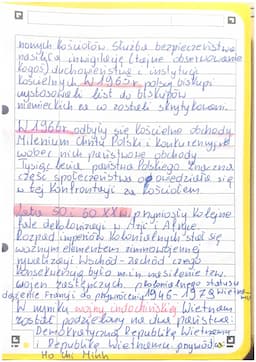 nowych kościołów. Służba bezpieczeństwa
nasiliła inwigilację (tajne obserwowanie
kogoś) duchowieństwa i instytucji
kościelnych. W 1965 r. polscy biskupi
wystosowali list do biskupów
niemieckich za co zostali skrytykowani.
W 1966r. odbyły się kościelne obchody
Milenium Chrztu Polski i konkurencyjne
wobec nich państwowe obchody
Tysiąclecia państwa Polskiego. Znaczna
część społeczeństwa opowiedziała się
w tej konfrontacji za kościołem.
Lata 50 i 60 XX w przyniosły kolejne
fale dekolonizacji w Azji i Afryce.
Rozpad imperiów kolonialnych stał się
ważnym elementem zimnowojennej
rywalizacji Wschód-Zachód czego
konsekwencją było m.in nasilenie tzw.
wojen zastępczych kolonialnego statusu
dążenie Francji do przywrócenia 1946-1973
W wyniku wojny indochińskiej Wietnam
został podzielony na dwa państwa:
Demokratyczną Republikę Wietnamu
i Republikę Wietnamu.
Ho Chi Minh